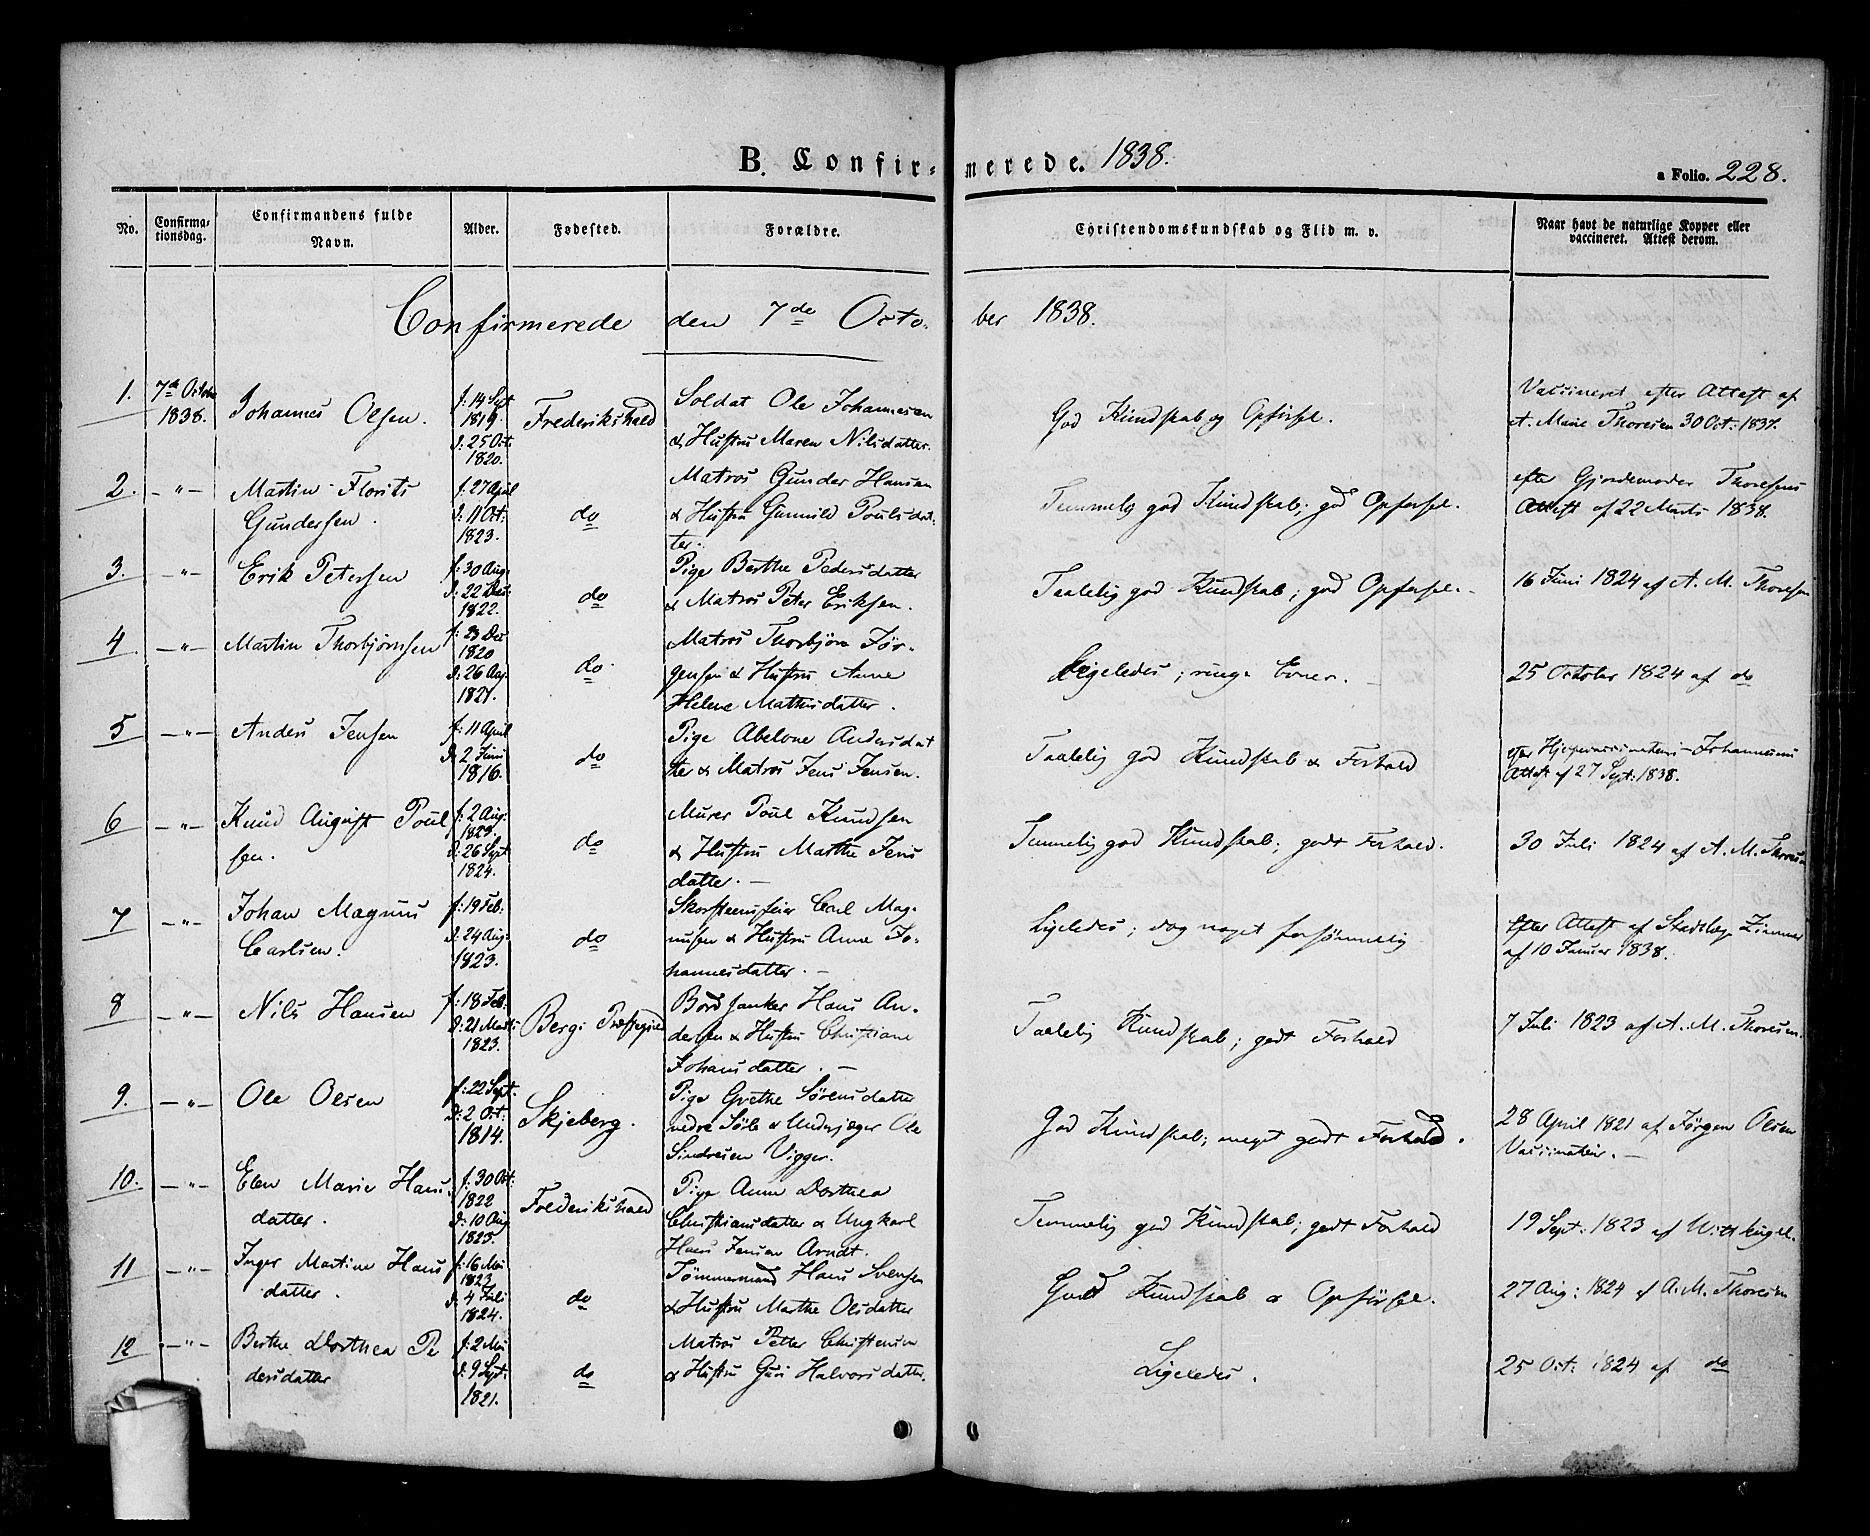 B. Confir- merede. 1838.
a Folio. 228.
No. Confirma-tionsdag. Confirmandens fulde Navn. Alder. Fødested. Forældre. Christendomskundskab og Flid m. v. Naar havt de naturlige Kopper eller vaccineret. Attest derom.
Confirmerede den 7de Octo- ber 1838.
1. 7de October 1838. Johannes Olsen. f: 14 Sept 1819. d: 25 Oct: 1820. Frederikshald
Soldat Ole Johannesen
& Hustru Maren Nilsdatter.
God Kundskab og Opførsel.
Vaccineret efter Attest af
A. Marie Thoresen 30 Oct: 1837.
2. -"- Martin Florits
Gundersen. f: 27 April d: 11 Oct: 1823. do
Matros Gunder Hansen
& Hustru Gunnild Poulsdat-
ter.
Temmelig god Kundskab; god Opførsel.
efter Gjordemoder Thoresens
Attest af 22 Marts 1838.
3. -"- Erik Petersen f: 30 Aug: d: 22 Dec: 1822. do
Pige Berthe Pedersdatter
& Matros Peter Eriksen.
Taalelig god Kundskab; god Opførsel.
16 Juni 1824 af A. M. Thoresen
4 -"- Martin Thorbjørnsen f: 23 Dec 1820 d: 26 Aug. 1821. do
Matros Thorbjørn Jør-
gensen & Hustru Anne
Helene Mathisdatter.
Ligeledes; ringe Evner.
25 October 1824 af do
5 -"- Anders Jensen f: 11 April d: 2 Juni 1816. do
Pige Abelone Andersdat
ter & Matros Jens Jensen.
Taalelig god Kundskab & Forhold
efter Hjelpevaccinateur Johannesens
Attest af 27 Sept: 1838.
6 -"- Knud August Poul
sen. f: 2 Aug: 1823. d: 26 Sept 1824. do
Murer Poul Knudsen
& Hustru Marthe Jens
datter.
Temmelig god Kundskab; godt Forhold.
30 Juli 1824 af A. M. Thoresen
7 -"- Johan Magnus
Carlsen. f: 19 Feb: d: 24 Aug: 1823. do
Skorsteensfeier Carl Mag-
nusen & Hustru Anne Jo-
hannesdatter.
Ligeledes; dog noget forsømmelig
Efter Attest af Stadslæge Zimmer
af 10 Januar 1838.
8 -"- Nils Hansen f: 18 Feb. d: 21 Marts: 1823. Bergs Præstegield
Bordsanker Hans An-
dersen & Hustru Christiane
Johansdatter.
Taalelig Kundskab; godt Forhold
7 Juli 1823 af A. M. Thoresen.
9. -"- Ole Olsen f: 22 Sept. d: 2 Oct: 1814. Skjeberg.
Pige Grethe Sørensdatter
nedre Sørle & Underjæger Ole
Sindresen Vigger.
God Kundskab; meget godt Forhold.
28 April 1821 af Jørgen Olsen
Vaccinateur.
10. -"- Elen Marie Hans
datter. f: 30 Oct: 1822 d: 10 Aug: 1823. Frederikshald
Pige Anne Dorthea
Christiansdatter & Ungkarl
Hans Jensen Arndt.
Temmelig god Kundskab; godt Forhold
19 Sept: 1823 af Wittkugel.
11 -"- Inger Martine Hans
datter. f: 16 Mai 1823 d: 4 Juli 1824. do
Tømmermand Hans Svensen
& Hustru Marthe Olsdatter
God Kundskab & Opførsel.
27 Aug: 1824 af A. M. Thoresen
12 -"- Berthe Dorthea Pe
dersdatter f: 2 Mai d: 9 Sept: 1821. do
Matros Petter Christensen
& Hustru Guri Halvorsdatter.
Ligeledes.
25 Oct: 1824 af do